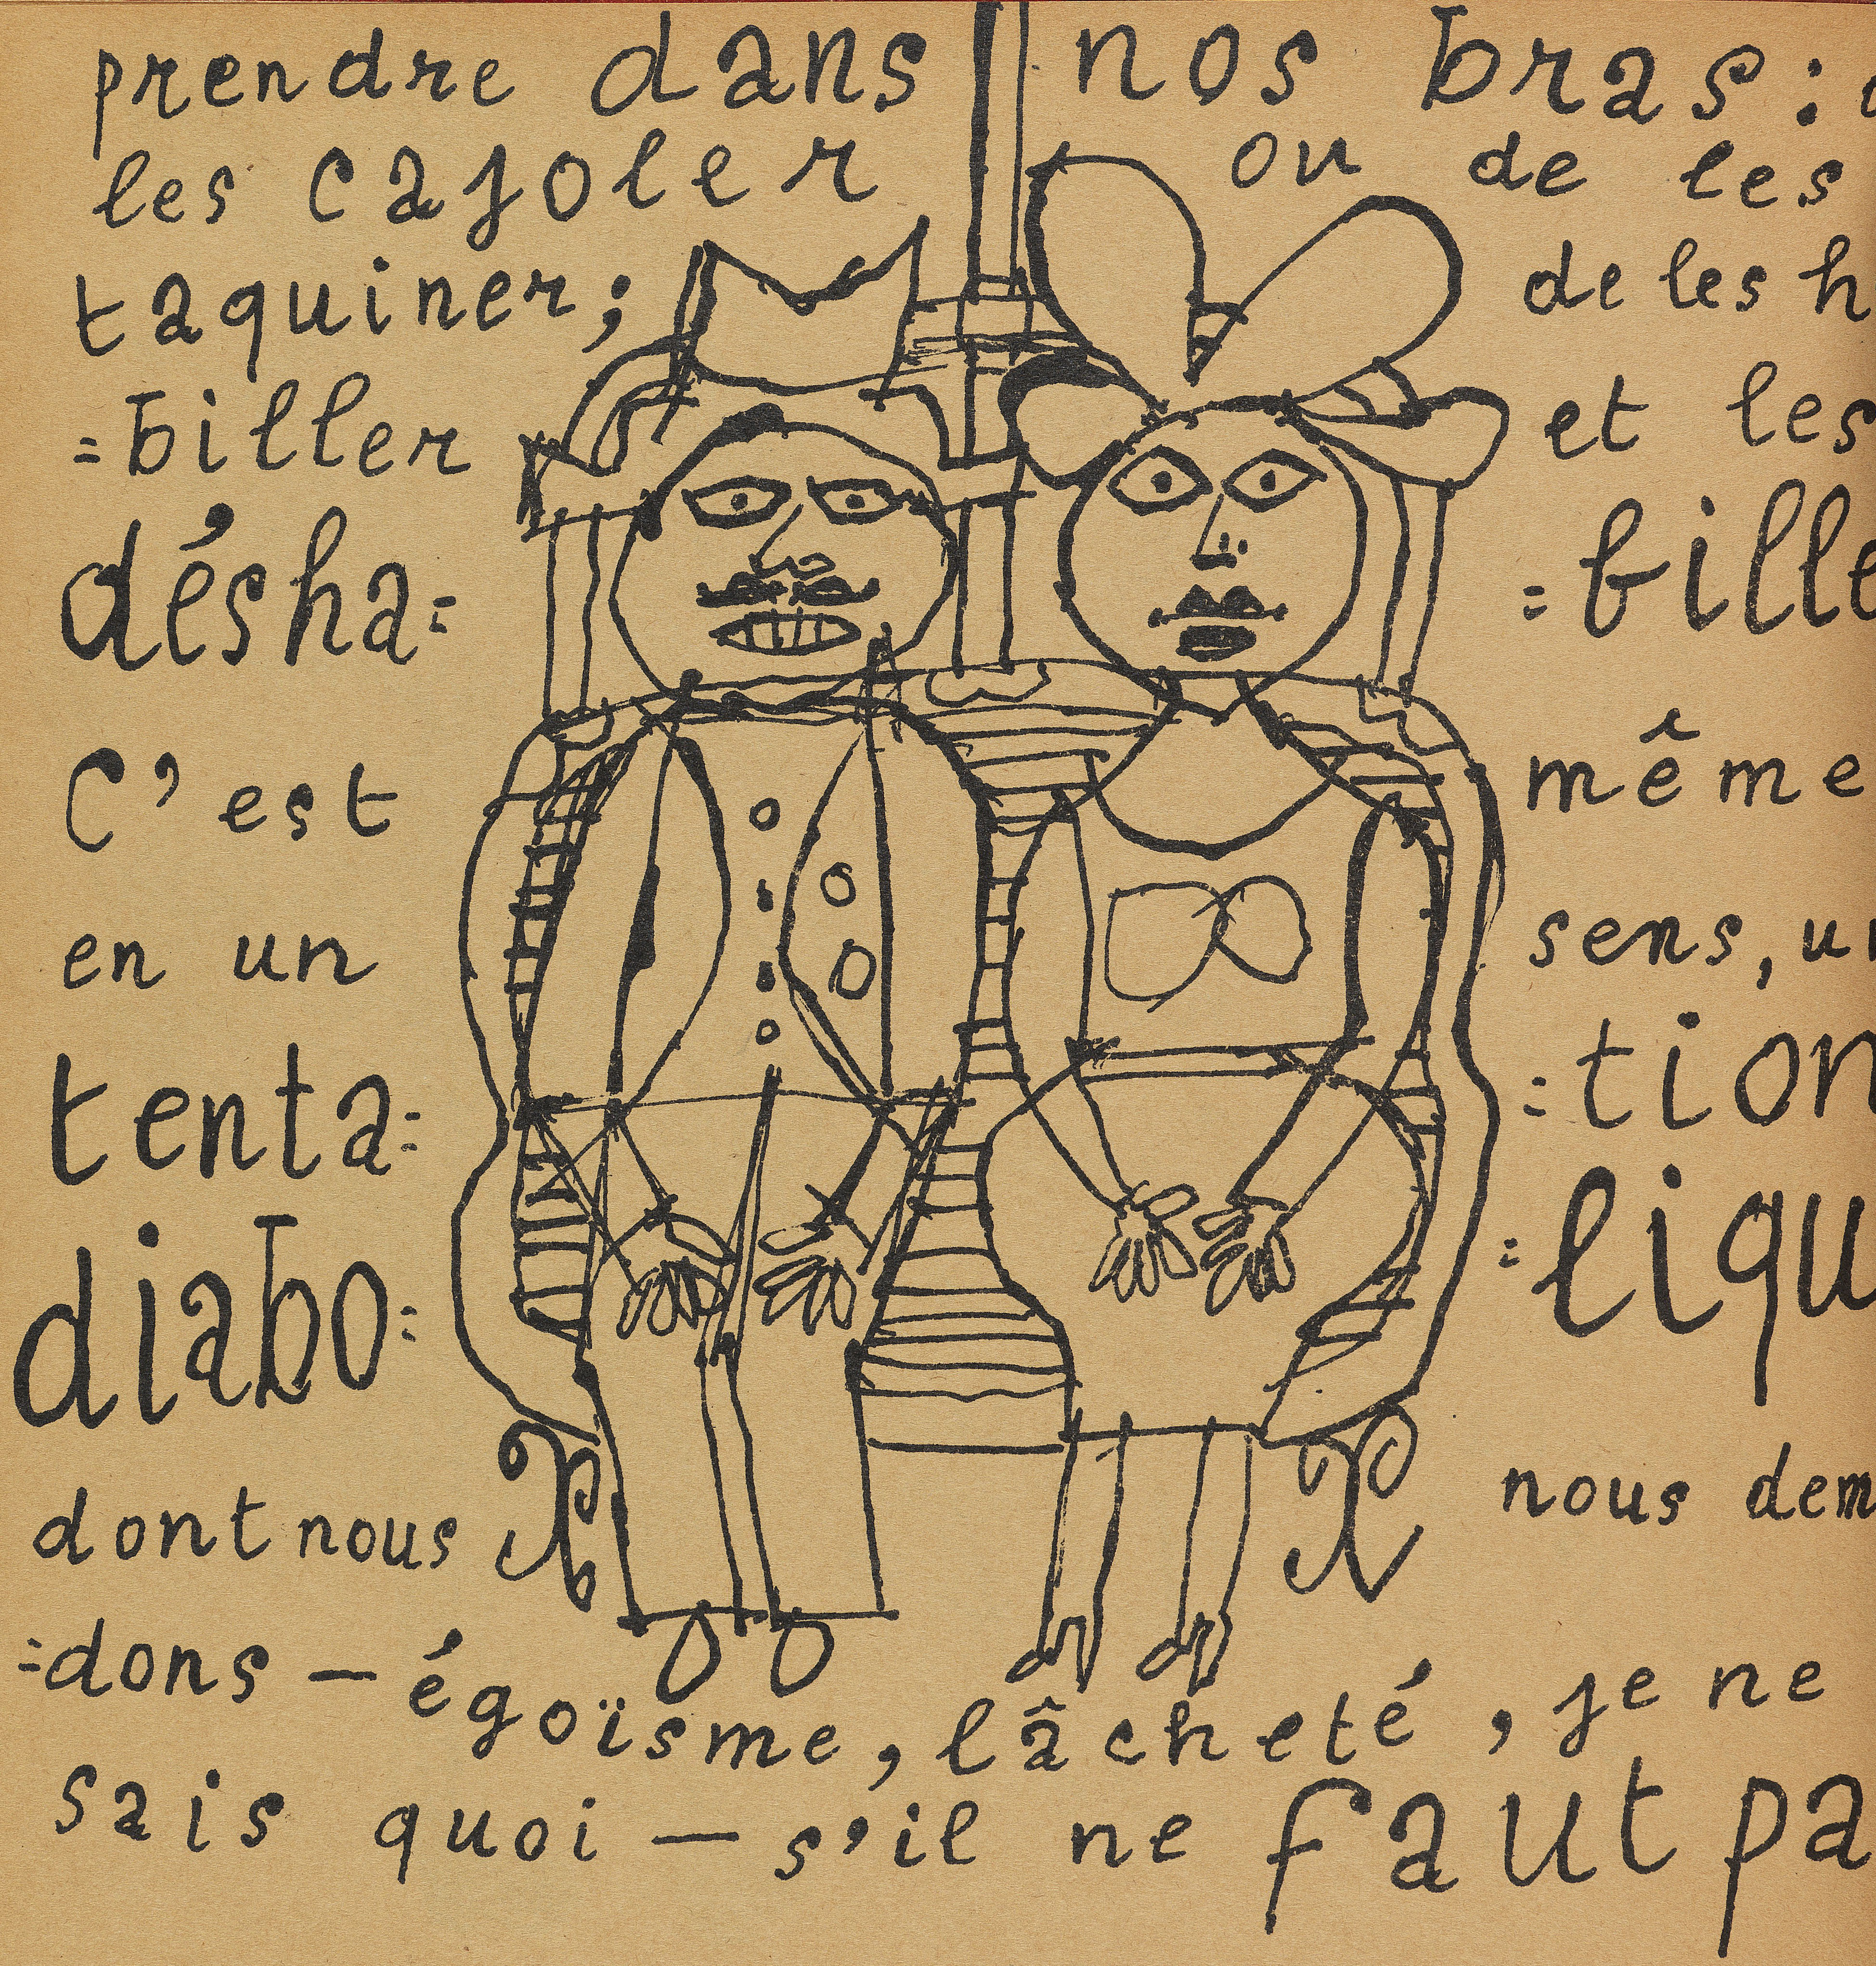 prendre dans nos bras :
les cajoler ou de les
taquiner; de les h
=biller et les
désha= =bille
C'est même
en un sens, un
tenta= =tion
diabo= =liqu
dont nous nous dem
=dons — égoïsme, lâcheté, je ne
sais quoi — s'il ne faut pa